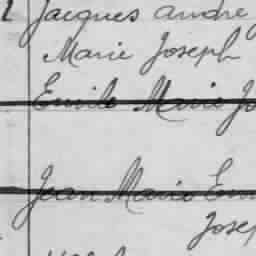 Jacques andre
Marie Joseph
Emile Marie Jo
Jean Marie Emi
Josep